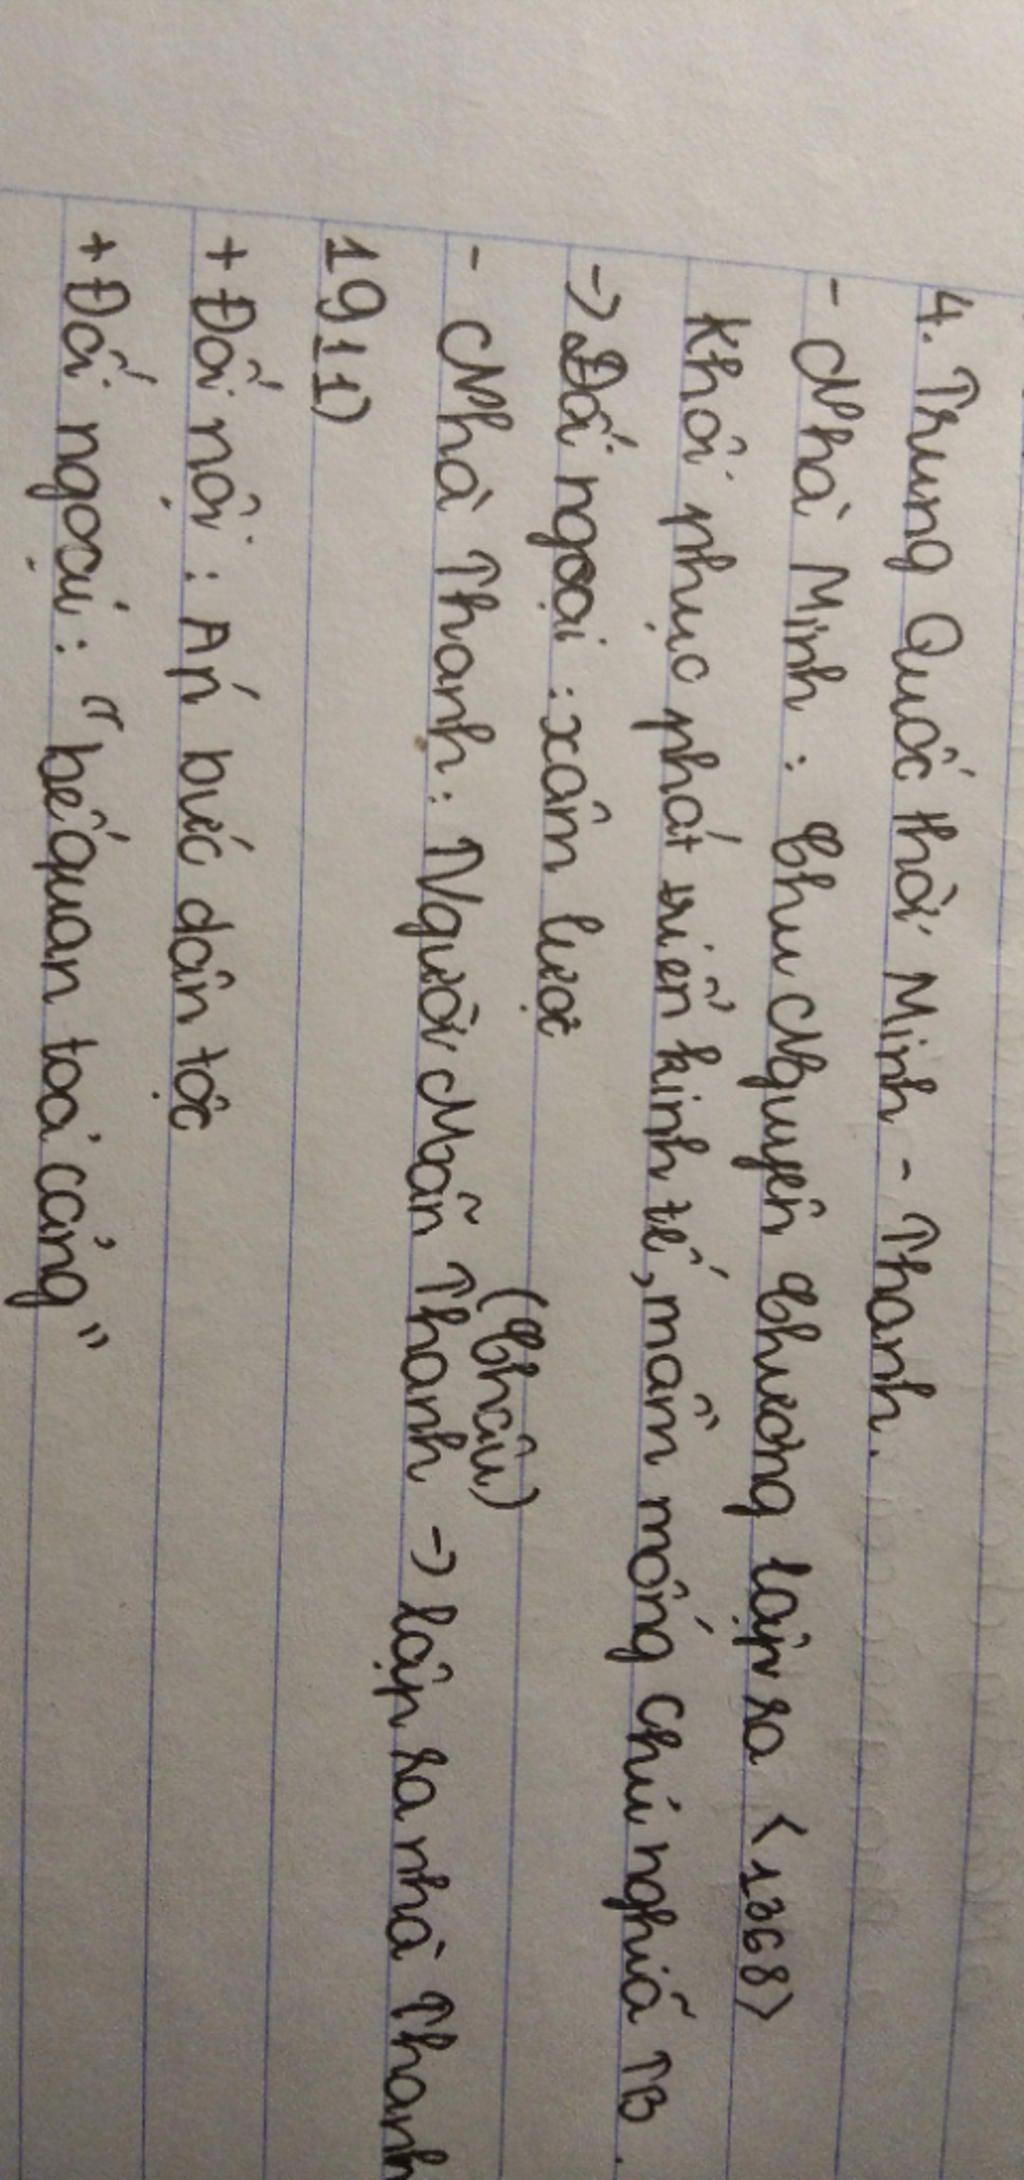 4. Trung Quốc thời Minh - Thanh.
- Nhà Minh : Chu Nguyên Chương lập ra <1368>
Khôi phục phát triển kinh tế, mầm mống chủ nghĩa TB.
-> Đối ngoại : xâm lược
(Châu)
- Nhà Thanh : Người Mãn Thanh -> lập ra nhà Thanh
1911)
+ Đối nội : Áp bức dân tộc
+ Đối ngoại : "bế quan toả cảng"